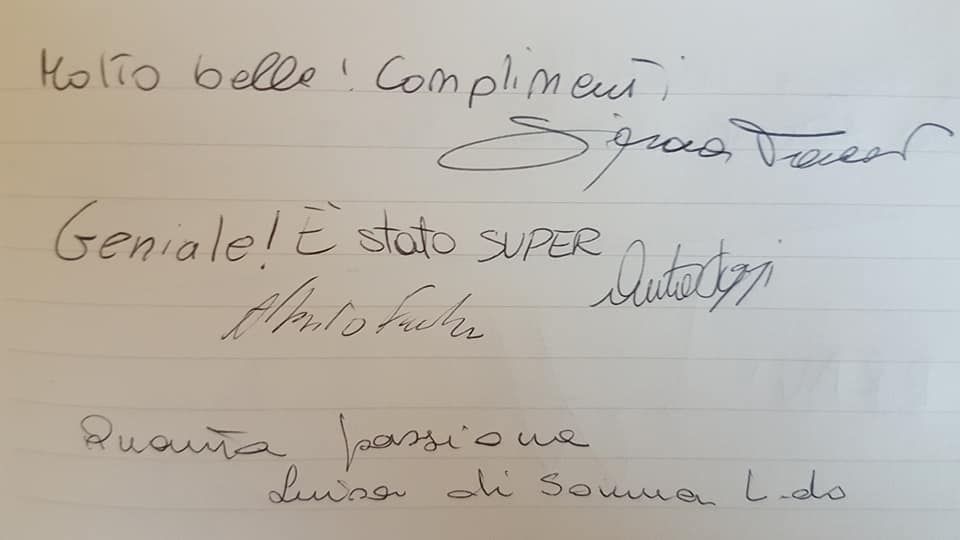 Molto belle! Complimenti
Geniale! È stato SUPER
Quanta passione
Luisa di Somma L.do